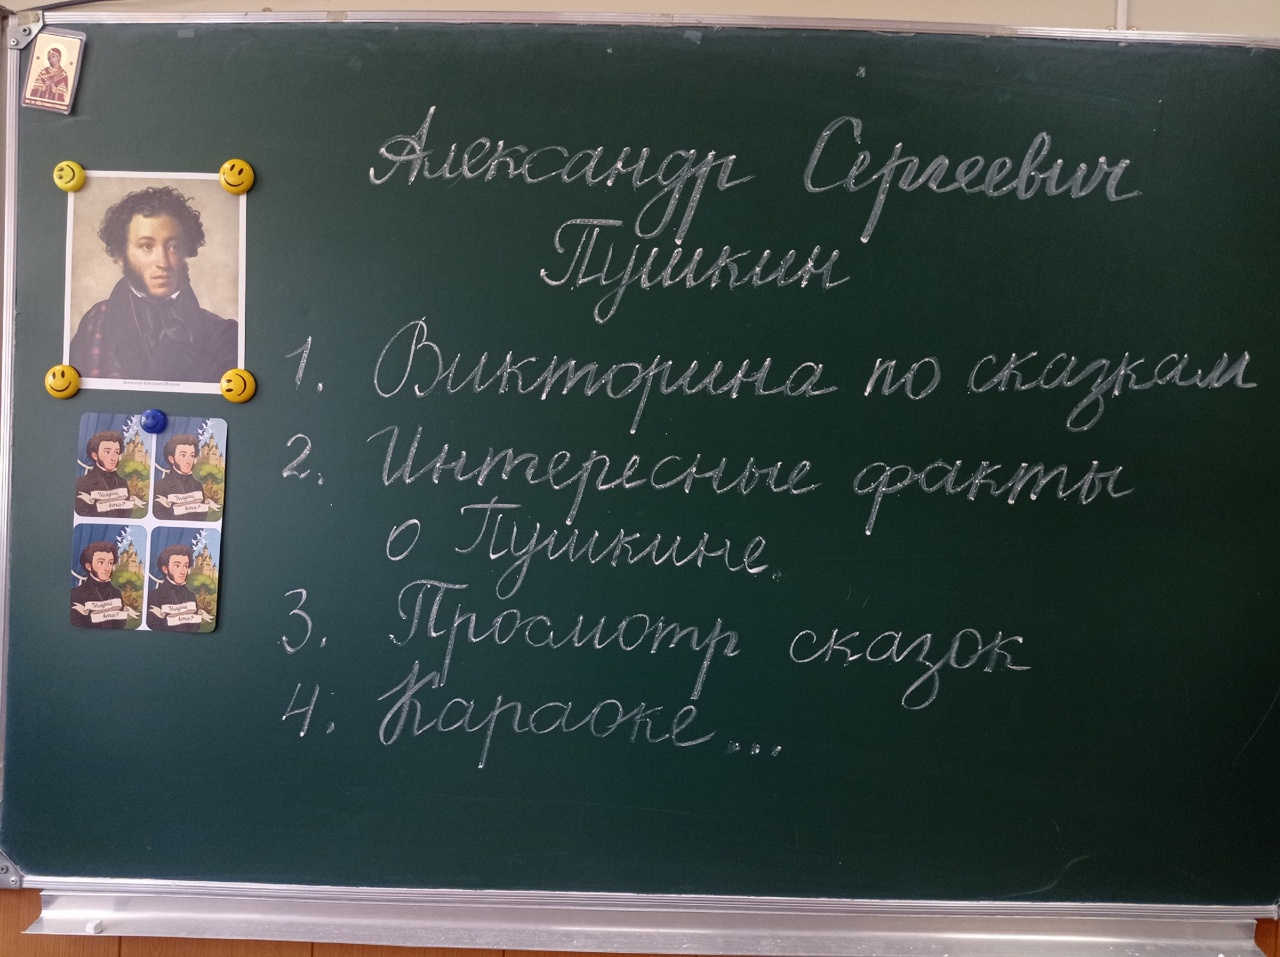 Александр Сергеевич
Пушкин
1. Викторина по сказкам
2. Интересные факты
о Пушкине.
3. Просмотр сказок
4. Караоке...
Угадай
кто?
Угадай
кто?
Угадай
кто?
Угадай
кто?